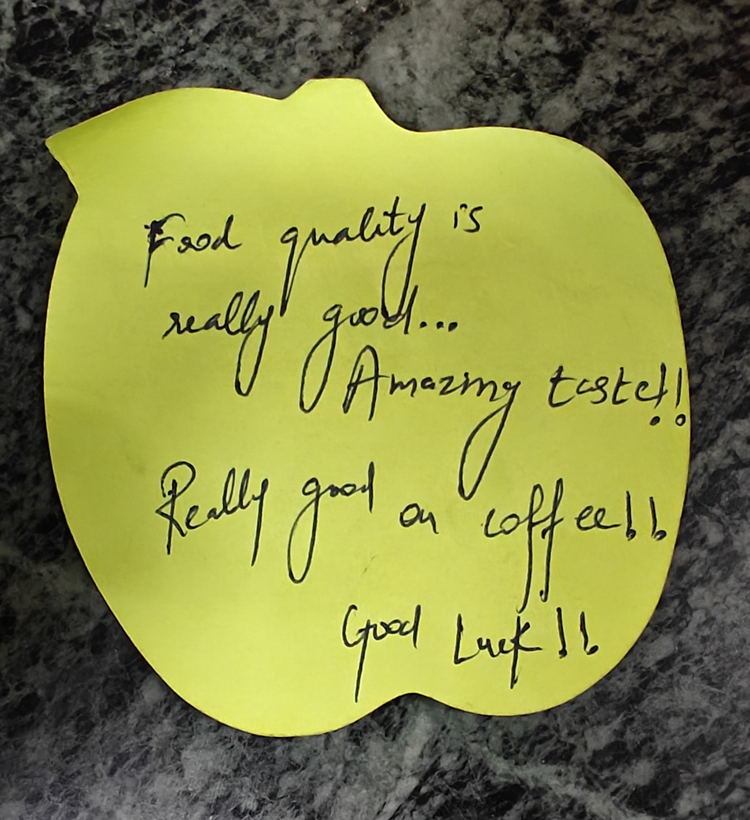 Food quality is
really good...
Amazing taste!!
Really good on coffee!!
Good Luck!!